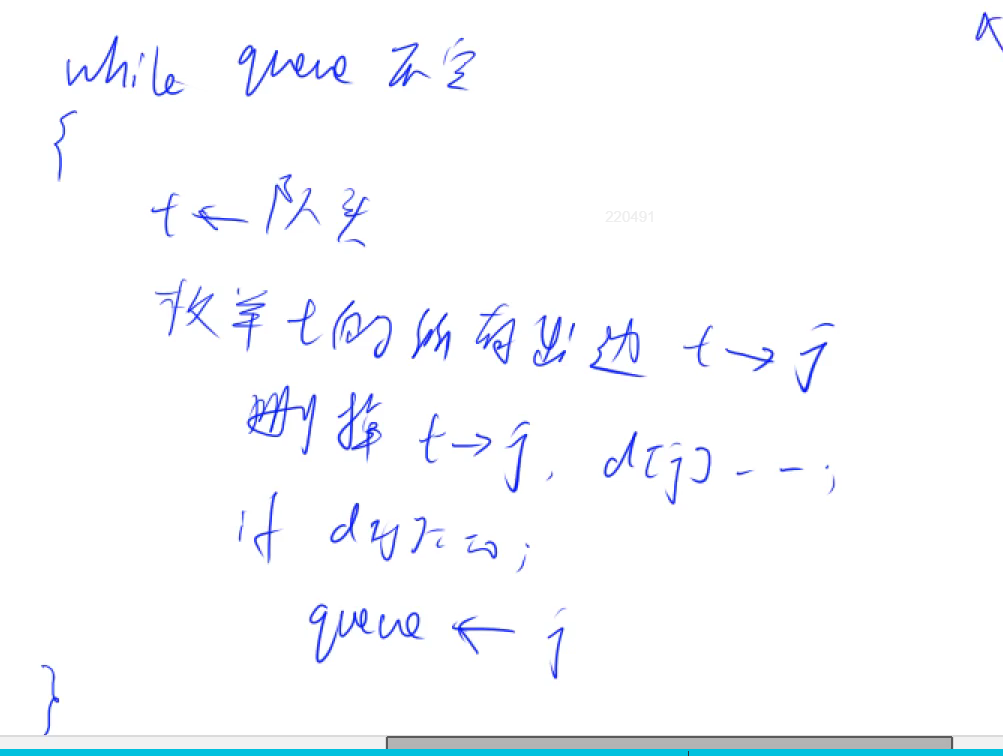 while queue 不空
{
t ← 队头
220491
枚举 t 的所有出边 t → j
删掉 t → j, d[j]--;
if d[j] == 0;
queue ← j
}